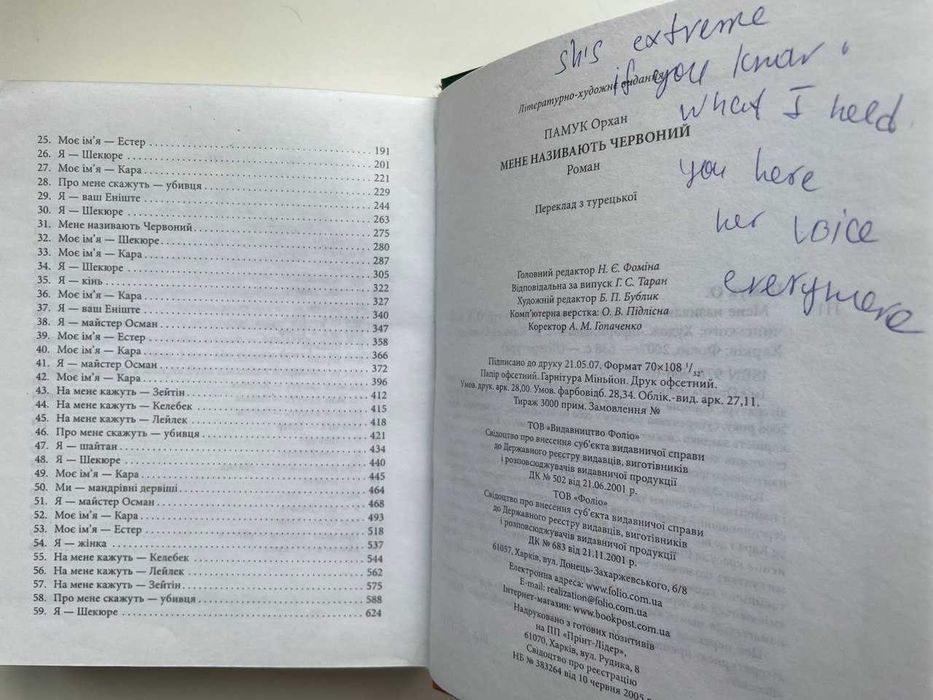 25. Моє ім’я — Естер 191
26. Я — Шекюре 201
27. Моє ім’я — Кара 221
28. Про мене скажуть — убивця 229
29. Я — ваш Еніште 244
30. Я — Шекюре 263
31. Мене називають Червоний 275
32. Моє ім’я — Шекюре 280
33. Моє ім’я — Кара 287
34. Я — Шекюре 305
35. Я — кінь 322
36. Моє ім’я — Кара 327
37. Я — ваш Еніште 340
38. Я — майстер Осман 347
39. Моє ім’я — Естер 358
40. Моє ім’я — Кара 366
41. Я — майстер Осман 372
42. Моє ім’я — Кара 396
43. На мене кажуть — Зейтін 412
44. На мене кажуть — Келебек 415
45. На мене кажуть — Лейлек 418
46. Про мене скажуть — убивця 421
47. Я — шайтан 434
48. Я — Шекюре 440
49. Моє ім’я — Кара 445
50. Ми — мандрівні дервіші 464
51. Я — майстер Осман 468
52. Моє ім’я — Кара 493
53. Моє ім’я — Естер 518
54. Я — жінка 537
55. На мене кажуть — Келебек 544
56. На мене кажуть — Лейлек 562
57. На мене кажуть — Зейтін 575
58. Про мене скажуть — убивця 588
59. Я — Шекюре 624
extreme
if you
what I need
you here
her voice
Літературно-художнє видання
ПАМУК Орхан
МЕНЕ НАЗИВАЮТЬ ЧЕРВОНИЙ
Роман
Переклад з турецької
Головний редактор Н. Є. Фоміна
Відповідальна за випуск Г. С. Таран
Художній редактор Б. П. Бублик
Комп’ютерна верстка: О. В. Підлісна
Коректор А. М. Гопаченко
Підписано до друку 21.05.07. Формат 70×108 1/32.
Папір офсетний. Гарнітура Міньйон. Друк офсетний.
Умов. друк. арк. 28,00. Умов. фарбовідб. 28,34. Облік.-вид. арк. 27,11.
Тираж 3000 прим. Замовлення №
ТОВ «Видавництво Фоліо»
Свідоцтво про внесення суб’єкта видавничої справи
до Державного реєстру видавців, виготівників
і розповсюджувачів видавничої продукції
ДК № 502 від 21.06.2001 р.
ТОВ «Фоліо»
Свідоцтво про внесення суб’єкта видавничої справи
до Державного реєстру видавців, виготівників
і розповсюджувачів видавничої продукції
ДК № 683 від 21.11.2001 р.
61057, Харків, вул. Донець-Захаржевського, 6/8
Електронна адреса: www.folio.com.ua
E-mail: realization@folio.com.ua
Інтернет-магазин: www.bookpost.com.ua
Надруковано з готових позитивів
на ПП «Прінт-Лідер»,
61070, Харків, вул. Рудика, 8
Свідоцтво про реєстрацію
НБ № 383264 від 10 червня 2005 р.